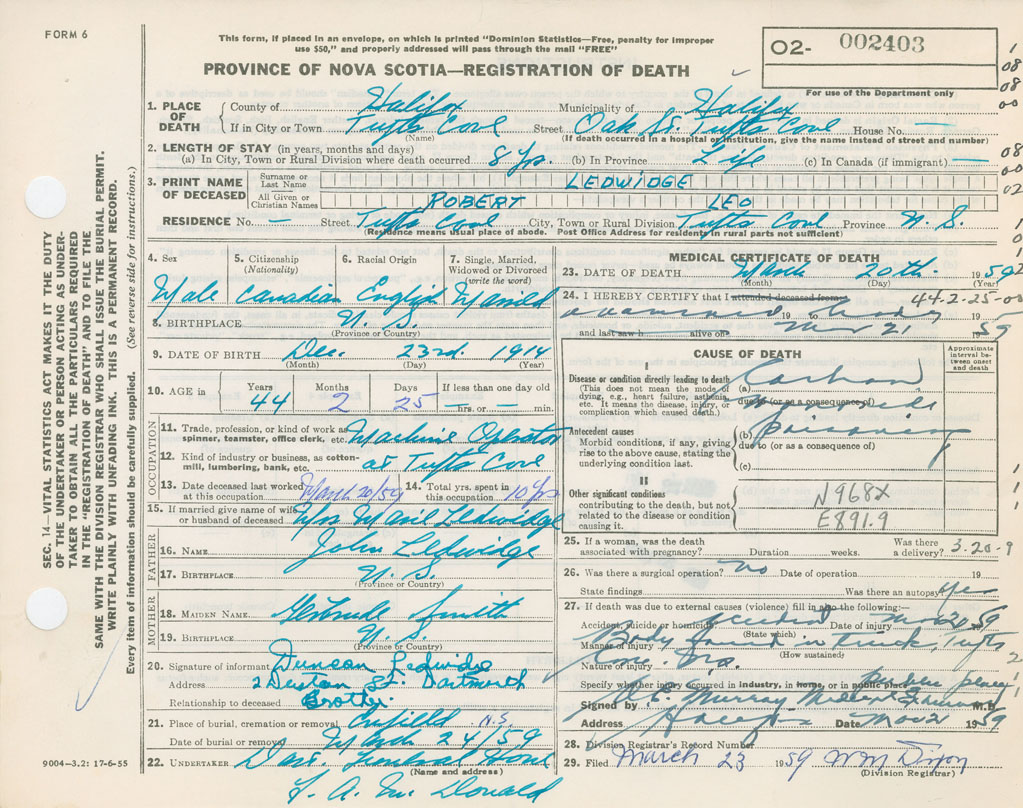 FORM 6
This form, if placed in an envelope, on which is printed "Dominion Statistics—Free, penalty for improper
use $50," and properly addressed will pass through the mail "FREE"
O2- 002403
For use of the Department only
PROVINCE OF NOVA SCOTIA—REGISTRATION OF DEATH
SEC. 14 VITAL STATISTICS ACT MAKES IT THE DUTY
OF THE UNDERTAKER OR PERSON ACTING AS UNDER-
TAKER TO OBTAIN ALL THE PARTICULARS REQUIRED
IN THE "REGISTRATION OF DEATH" AND TO FILE THE
SAME WITH THE DIVISION REGISTRAR WHO SHALL ISSUE THE BURIAL PERMIT.
WRITE PLAINLY WITH UNFADING INK. THIS IS A PERMANENT RECORD.
Every item of information should be carefully supplied. (See reverse side for instructions.)
1. PLACE OF DEATH County of Halifax Municipality of Halifax
If in City or Town Tufts Cove Street Oak St. Tufts Cove House No. —
(Name) (If death occurred in a hospital or institution, give the name instead of street and number)
2. LENGTH OF STAY (in years, months and days)
(a) In City, Town or Rural Division where death occurred 8 yrs. (b) In Province Life (c) In Canada (if immigrant) —
3. PRINT NAME OF DECEASED Surname or Last Name LEDWIDGE
All Given or Christian Names ROBERT LEO
RESIDENCE No. — Street Tufts Cove City, Town or Rural Division Tufts Cove Province N.S.
(Residence means usual place of abode. Post Office Address for residents in rural parts not sufficient)
4. Sex 5. Citizenship (Nationality) 6. Racial Origin 7. Single, Married, Widowed or Divorced (write the word)
Male Canadian English Married
8. BIRTHPLACE N.S.
(Province or Country)
9. DATE OF BIRTH Dec. 23rd. 1914
(Month) (Day) (Year)
10. AGE in Years Months Days If less than one day old
44 2 25 — hrs. or — min.
OCCUPATION
11. Trade, profession, or kind of work as spinner, teamster, office clerk, etc. Machine Operator
12. Kind of industry or business, as cotton-mill, lumbering, bank, etc. at Tufts Cove
13. Date deceased last worked at this occupation March 20/59 14. Total yrs. spent in this occupation 10 yrs
15. If married give name of wife or husband of deceased Ledwidge
FATHER
16. NAME John Ledwidge
17. BIRTHPLACE N.S.
(Province or Country)
MOTHER
18. MAIDEN NAME Gertrude Smith
19. BIRTHPLACE N.S.
(Province or Country)
20. Signature of informant Duncan Ledwidge
Address St. Dartmouth
Relationship to deceased Brother
21. Place of burial, cremation or removal Enfield N.S.
Date of burial or removal March 24/59
22. UNDERTAKER Dart. Funeral Home
(Name and address)
F. A. Mc Donald
9004—3.2: 17-6-55
MEDICAL CERTIFICATE OF DEATH
23. DATE OF DEATH March 20th. 1959
(Month) (Day) (Year)
24. I HEREBY CERTIFY that I attended deceased from 44-2-25-00
examined 19 to body 19
and last saw h alive on Mar 21 1959
CAUSE OF DEATH
Approximate interval between onset and death
I
Disease or condition directly leading to death
(This does not mean the mode of dying, e.g., heart failure, asthenia, etc. It means the disease, injury, or complication which caused death.)
(a) Carbon
due to (or as a consequence of) Monoxide
Antecedent causes
Morbid conditions, if any, giving rise to the above cause, stating the underlying condition last.
(b) poisoning
due to (or as a consequence of)
(c)
II
Other significant conditions contributing to the death, but not related to the disease or condition causing it.
N968X
E891.9
25. If a woman, was the death associated with pregnancy? Duration weeks. Was there a delivery? 3-20-9
26. Was there a surgical operation? No Date of operation 19
State findings Was there an autopsy? Yes
27. If death was due to external causes (violence) fill in also the following:—
Accident, suicide or homicide Accident Date of injury Mar 20 59
(State which)
Manner of injury Body found in truck, Tufts
(How sustained)
Nature of injury
Specify whether injury occurred in industry, in home, or in public place public place
Signed by Murray M.D.
Address Halifax Date Mar 21 1959
28. Division Registrar's Record Number
29. Filed March 23 1959 Wm Dixon
(Division Registrar)